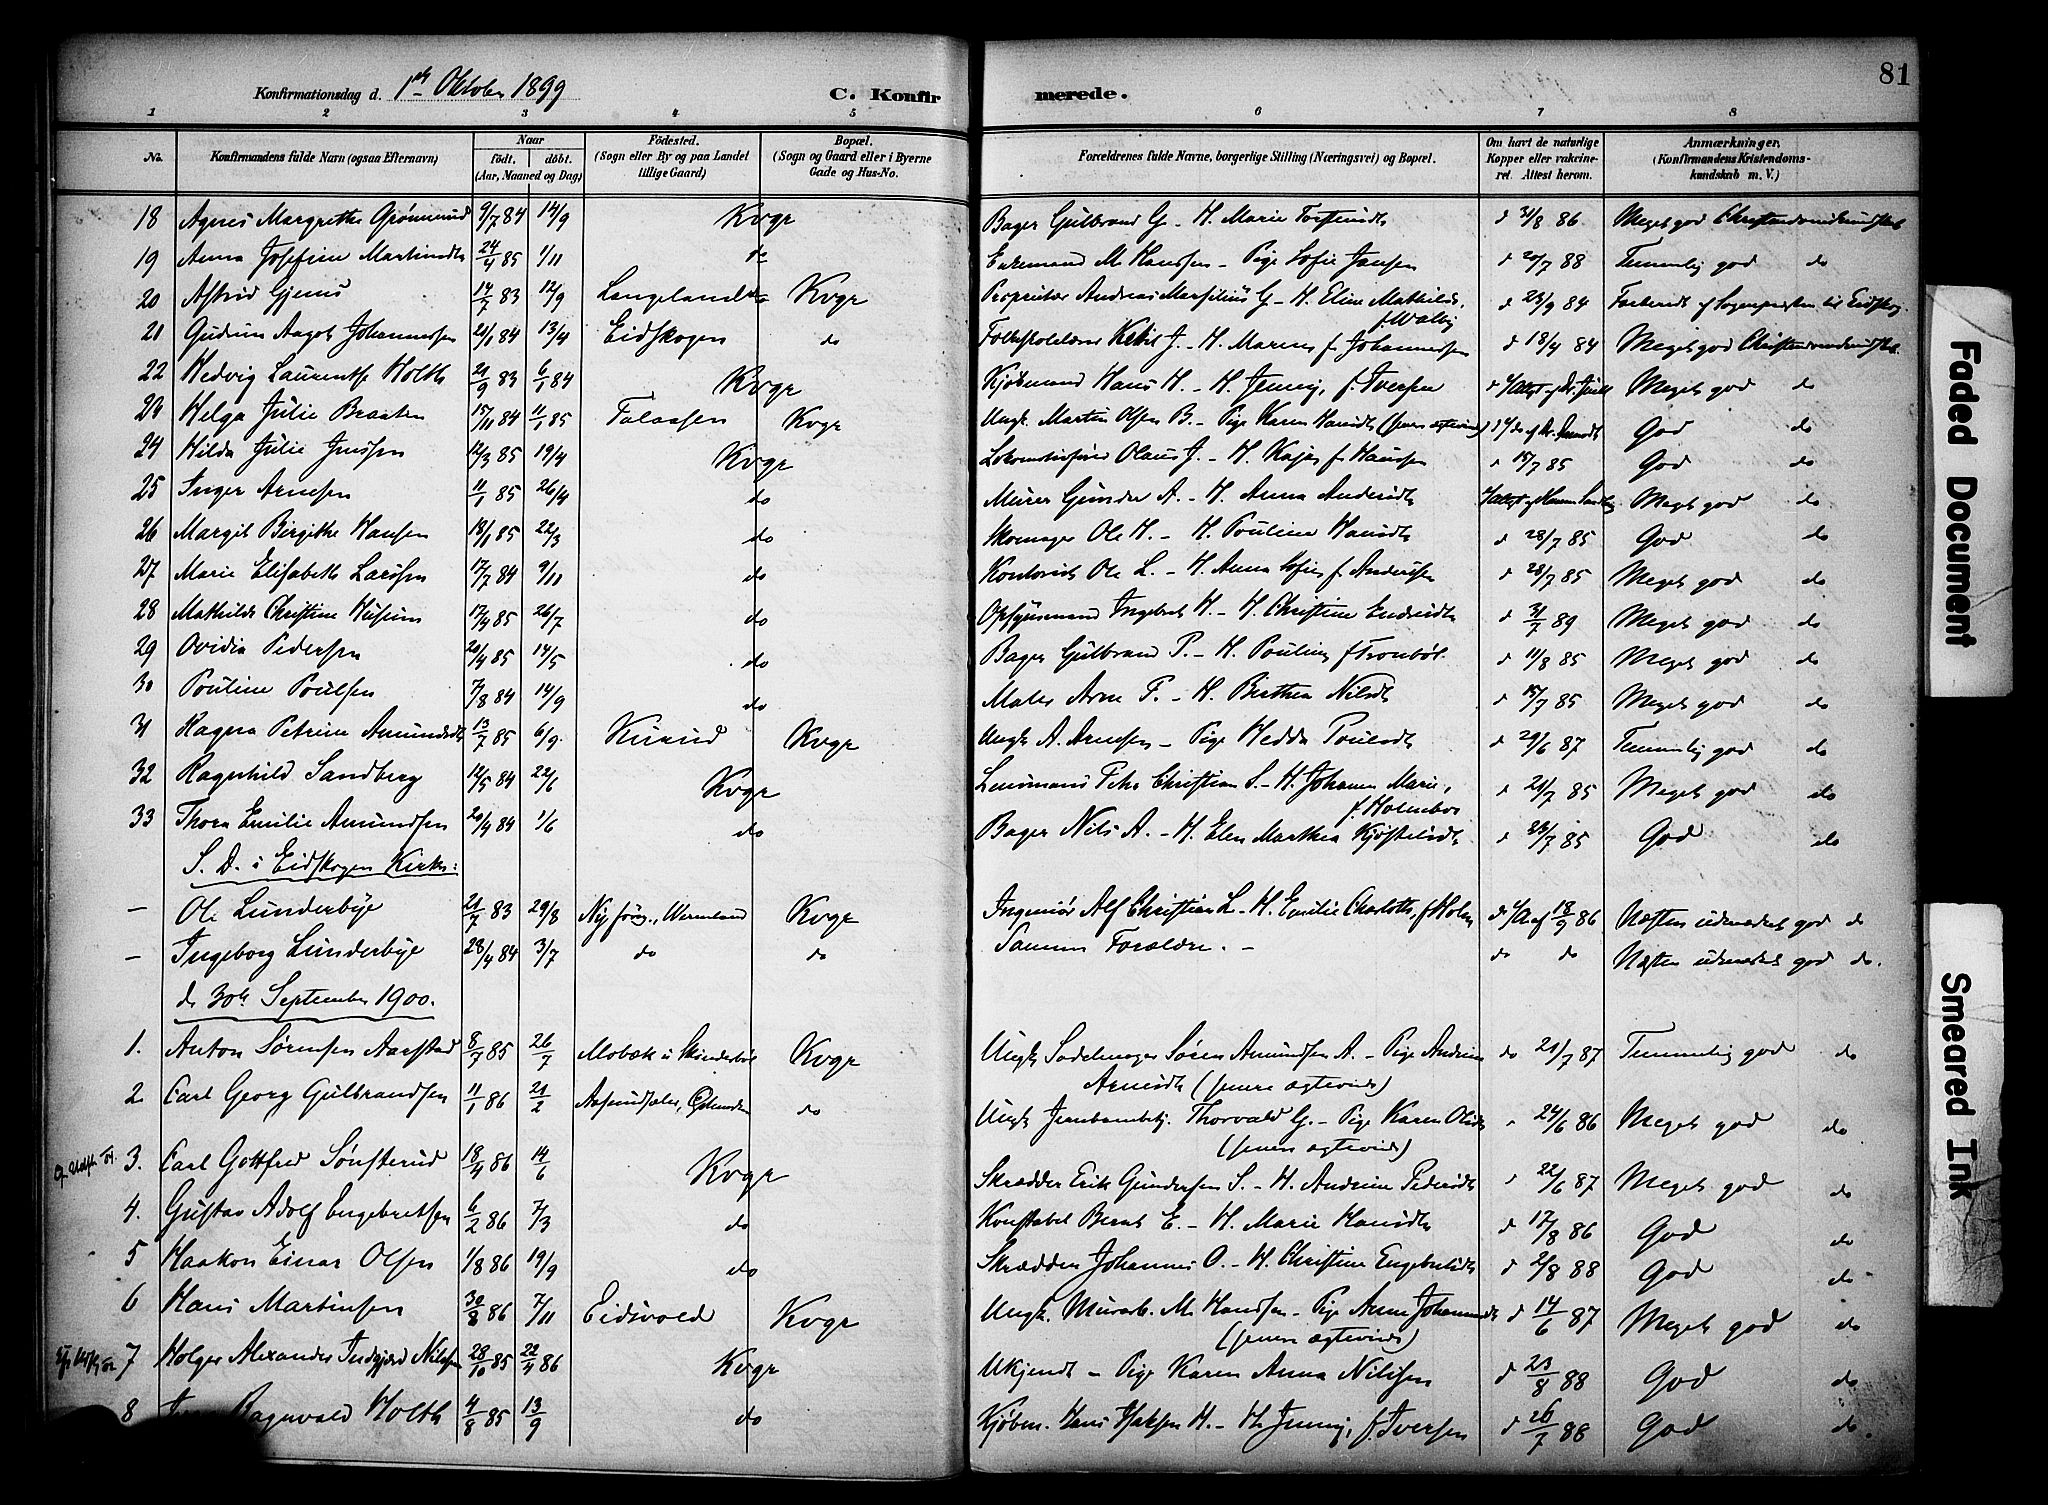 Konfirmationsdag d. 1ste Oktober 1899 C. Konfirmerede. 81
1 2 3 4 5 6 7 8
No. Konfirmandens fulde Navn (ogsaa Efternavn) Naar født, døbt. (Aar, Maaned og Dag) Fødested. (Sogn eller By og paa Landet tillige Gaard) Bopæl. (Sogn og Gaard eller i Byerne Gade og Hus-No. Forældrenes fulde Navne, borgerlige Stilling (Næringsvei) og Bopæl. Om havt de naturlige Kopper eller vakcineret. Attest herom. Anmærkninger. (Konfirmandens Kristendomskundskab m. V.)
18 Agnes Margrethe Grønnerud 9/7 84 14/9 Kvgr Bager Gulbrand G. - H. Marie Torstensdt d 31/8 86 Meget god Christendomskundskab
19 Anna Josefine Martinsdt 24/4 85 1/11 do Enkemand M. Hanssen - Pige Sofie Jansen d 20/7 88 Temmelig god do
20 Astrid Gjems 14/7 83 12/9 Kvgr Proprietær Andreas Marsilius G - H. Eline Mathilde, f. Walby d 23/9 84 Forberedt af Sognepresten til Eidskog
21 Gudrun Aagot Johannessen 21/1 84 13/4 Eidskogen do Ketil J. - H. Maren f. Johannessen d 18/4 84 Meget god Christendomskundskab
22 Hedvig Laurentse Holth 21/9 83 6/1 84 Kvgr Kjøbmand Hans H. - H. Jenny, f. Iversen Meget god do
23 Helga Julie Braaten 15/11 84 11/1 85 Kvgr Ungk. Martin Olsen B. - Pige Karen Hansdt (senere ægteviede) God do
24 Hilda Julie Jenssen 12/3 85 19/4 Kvgr Lokomotivfører Olaus J. - H. Kaja f. Hanssen d 15/7 85 God do
25 Inger Arnesen 11/1 85 26/4 do Murer Gunder A. - H. Anna Andersdt Meget god do
26 Margit Birgitte Hansen 18/1 85 22/3 do Skomager Ole H. - H. Pouline Hansdt d 28/7 85 God do
27 Marie Elisabeth Larssen 17/7 84 9/11 do Kontorist Ole L. - H. Anna Sofie f. Andersen d 28/7 85 Meget god do
28 Mathilde Christine Husum 17/4 85 26/7 do Opsynsmand Ingebret H. - H. Christine Endresdt d 31/7 89 Meget god do
29 Ovidia Pedersen 20/4 85 14/5 do Bager Gulbrand P. - H. Pouline f. Tronbøl d 11/8 85 Meget god do
30 Pouline Poulsen 7/8 84 14/9 do Maler Arne P. - H. Berthea Nilsdt d 15/7 85 Meget god do
31 Ragna Petrine Amundsdt 13/7 85 6/9 Kvgr Ungk A. Arnesen - Pige Hedda Poulsdt d 29/6 87 Temmelig god do
32 Ragnhild Sandberg 12/5 84 22/6 Kvgr Lensmand Peter Christian S. - H. Johanne Marie, f. Holmboe d 21/7 85 Meget god do
33 Thora Emilie Amundsen 20/4 84 1/6 do Bager Nils A. - H. Elen Marthea Kjøstelsdt d 23/7 85 God do
S. D. i Eidskogen Kirke:
- Ole Lunderbye 21/7 83 29/8 Wermland Kvgr Ingeniør Alf Christian L. - H. Emilie Charlotte, f. Holm 18/9 86 Næsten udmærket god do
- Ingeborg Lunderbye 28/4 84 3/7 do do Samme Forældre. - do do Næsten udmærket god do.
d. 30te September 1900.
1. Anton Sørensen Aarstad 8/7 85 26/7 Kvgr Ungk. Sadelmager Søren Amundsen A. - Pige Andrine Arnesdt (senere ægteviede) do 21/7 87 Temmelig god do
2 Carl Georg Gulbrandsen 11/1 86 21/2 do Ungk. Jernbanebetj. Thorvald G. - Pige Karen Olsdt (senere ægteviede) 24/6 86 Meget god do
3. Carl Gottfred Sønsterud 18/4 86 14/6 Kvgr Skrædder Erik Gundersen S. - H. Andrine Pedersdt 22/6 87 Meget god do
4. Gustav Adolf Engebretsen 6/2 86 7/3 do Konstabel Bernt E. - H. Marie Hansdt d 17/8 86 God do
5 Haakon Einar Olsen 1/8 86 19/9 do Skrædder Johannes O. - H. Christine Engebretsdt d 2/8 88 God do
6 Hans Martinsen 30/8 86 7/11 Eidsvold Kvgr Ungk. Murarb. M. Hanssen - Pige Anne Johannesdt (senere ægteviede) d 14/6 87 Meget god do
7 Holger Alexander Indgjærd Nilssen 28/10 85 22/4 86 Kvgr Ukjendt - Pige Karen Anna Nilssen d 23/8 88 God do
8 Ragnvald Holth 4/8 85 13/9 do Kjøbm. Hans Isaksen H. - H. Jenny, f. Iversen d 26/7 88 God do.
Faded Document
Smeared Ink